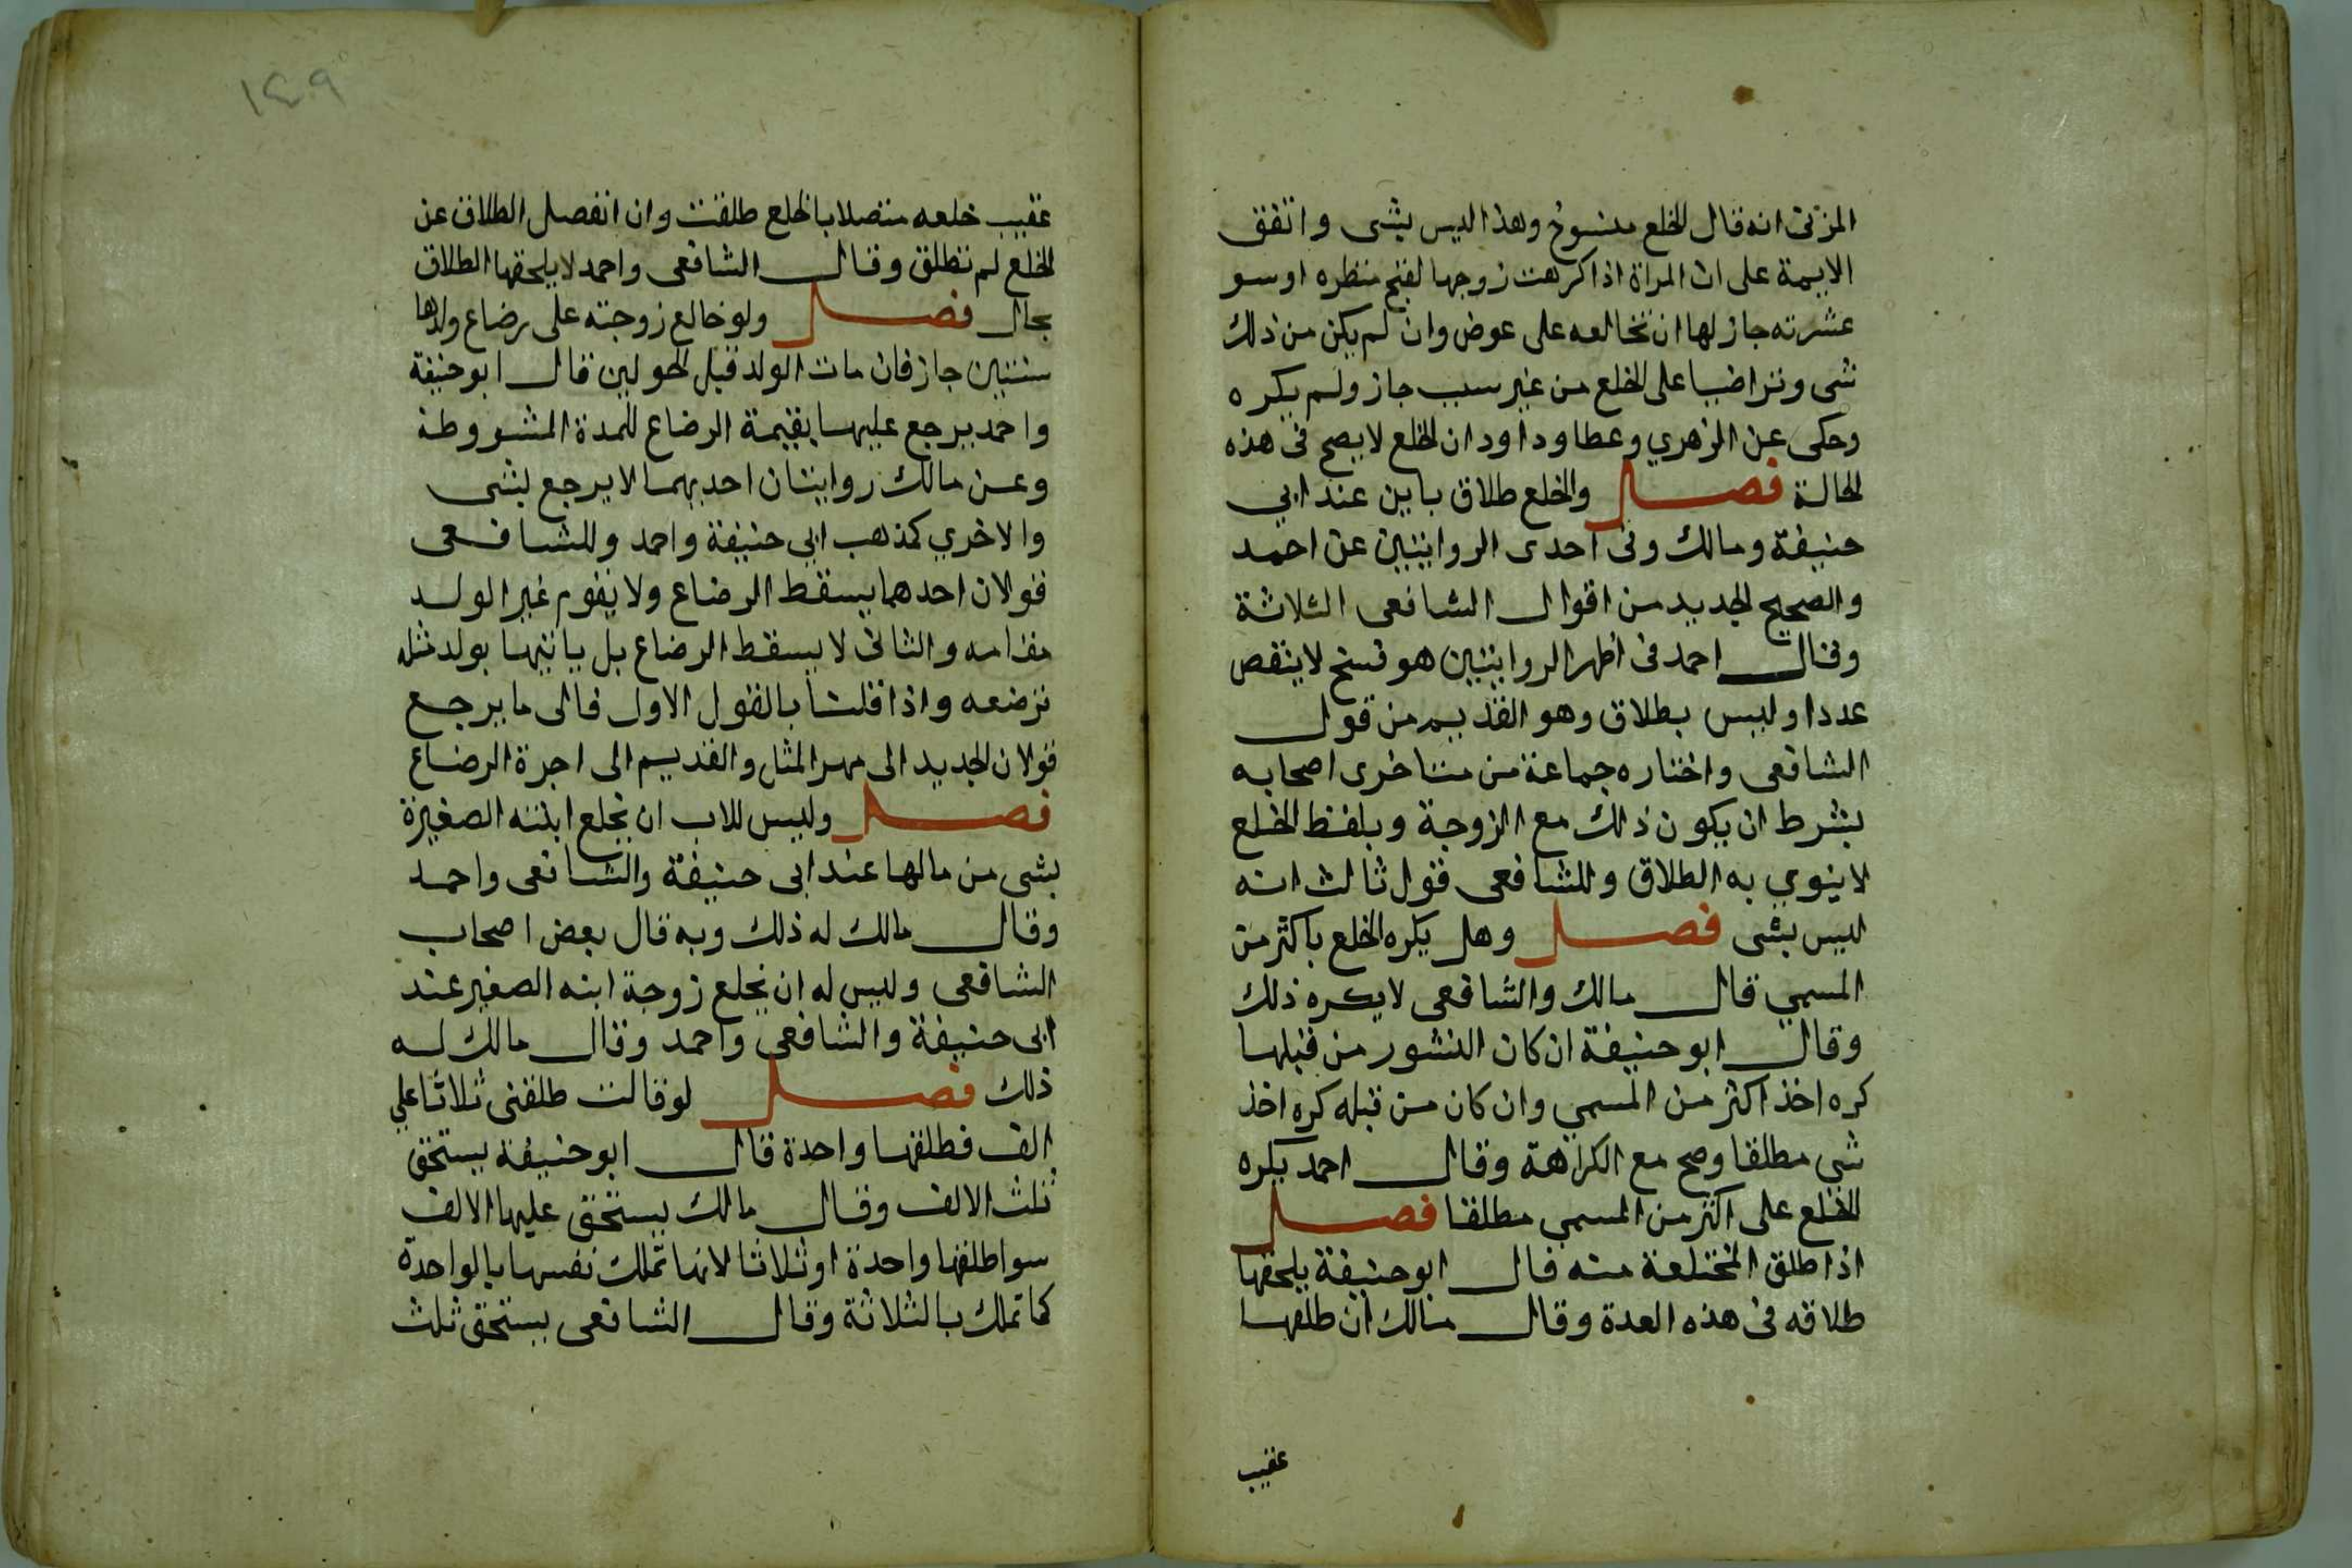 المزنى انه قال الخلع منسوخ وهذا ليس بشى واتفق
الايمة على ان المراة اذا كرهت زوجها لقبح منظره اوسو
عشرته جاز لها ان تخالعه على عوض وان لم يكن من ذلك
شى وتراضيا على الخلع من غير سبب جاز ولم يكره
وحكى عن الزهري وعطا وداود ان الخلع لا يصح فى هذه
الحالة فصل والخلع طلاق باين عند ابي
حنيفة ومالك وفى احدى الروايتين عن احمد
والصحيح الجديد من اقوال الشافعى الثلاثة
وقال احمد فى اظهر الروايتين هو فسخ لا ينقص
عددا وليس بطلاق وهو القديم من قول
الشافعى واختاره جماعة من متاخرى اصحابه
بشرط ان يكون ذلك مع الزوجة وبلفظ الخلع
لا ينوي به الطلاق وللشافعى قول ثالث انه
ليس بشى فصل وهل يكره الخلع باكثر من
المسمي قال مالك والشافعى لا يكره ذلك
وقال ابو حنيفة ان كان النشوز من قبلها
كره اخذ اكثر من المسمي وان كان من قبله كره اخذ
شي مطلقا وصح مع الكراهة وقال احمد يكره
الخلع على اكثر من المسمي مطلقا فصل
اذا طلق المختلعة منه قال ابو حنيفة يلحقها
طلاقه فى هذه العدة وقال مالك ان طلقها
عقيب
١٤٩
عقيب خلعه متصلا بالخلع طلقت وان انفصل الطلاق عن
الخلع لم تطلق وقال الشافعى واحمد لا يلحقها الطلاق
بحال فصل ولو خالع زوجته على رضاع ولدها
سنتين جاز فان مات الولد قبل الحولين قال ابو حنيفة
واحمد يرجع عليها بقيمة الرضاع للمدة المشروطة
وعن مالك روايتان احديهما لا يرجع بشى
والاخري كمذهب ابي حنيفة واحمد وللشافعى
قولان احدهما يسقط الرضاع ولا يقوم غير الولد
مقامه والثانى لا يسقط الرضاع بل ياتيها بولد مثله
ترضعه واذا قلنا بالقول الاول فالى ما يرجع
قولان الجديد الى مهر المثل والقديم الى اجرة الرضاع
فصل وليس للاب ان يخلع ابنته الصغيرة
بشى من مالها عند ابى حنيفة والشافعى واحمد
وقال مالك له ذلك وبه قال بعض اصحاب
الشافعى وليس له ان يخلع زوجة ابنه الصغير عند
ابى حنيفة والشافعى واحمد وقال مالك له
ذلك فصل لو قالت طلقنى ثلاثا علي
الف فطلقها واحدة قال ابو حنيفة يستحق
ثلث الالف وقال مالك يستحق عليها الالف
سوا طلقها واحدة او ثلاثا لانها تملك نفسها بالواحدة
كما تملك بالثلاثة وقال الشافعى يستحق ثلث